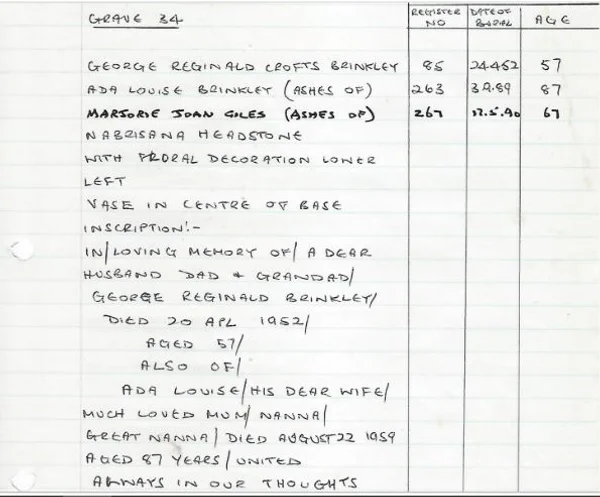 GRAVE 34 REGISTER NO DATE OF BURIAL AGE
GEORGE REGINALD CROFTS BRINKLEY 85 24.4.52 57
ADA LOUISE BRINKLEY (ASHES OF) 263 3.9.89 87
MARJORIE JOAN GILES (ASHES OF) 267 17.5.90 67
NABRISANA HEADSTONE
WITH FLORAL DECORATION LOWER
LEFT
VASE IN CENTRE OF BASE
INSCRIPTION:-
IN/LOVING MEMORY OF/ A DEAR
HUSBAND DAD & GRANDAD/
GEORGE REGINALD BRINKLEY/
DIED 20 APL 1952/
AGED 57/
ALSO OF/
ADA LOUISE/HIS DEAR WIFE/
MUCH LOVED MUM/NANNA/
GREAT NANNA/ DIED AUGUST 22 1959
AGED 87 YEARS/UNITED
ALWAYS IN OUR THOUGHTS